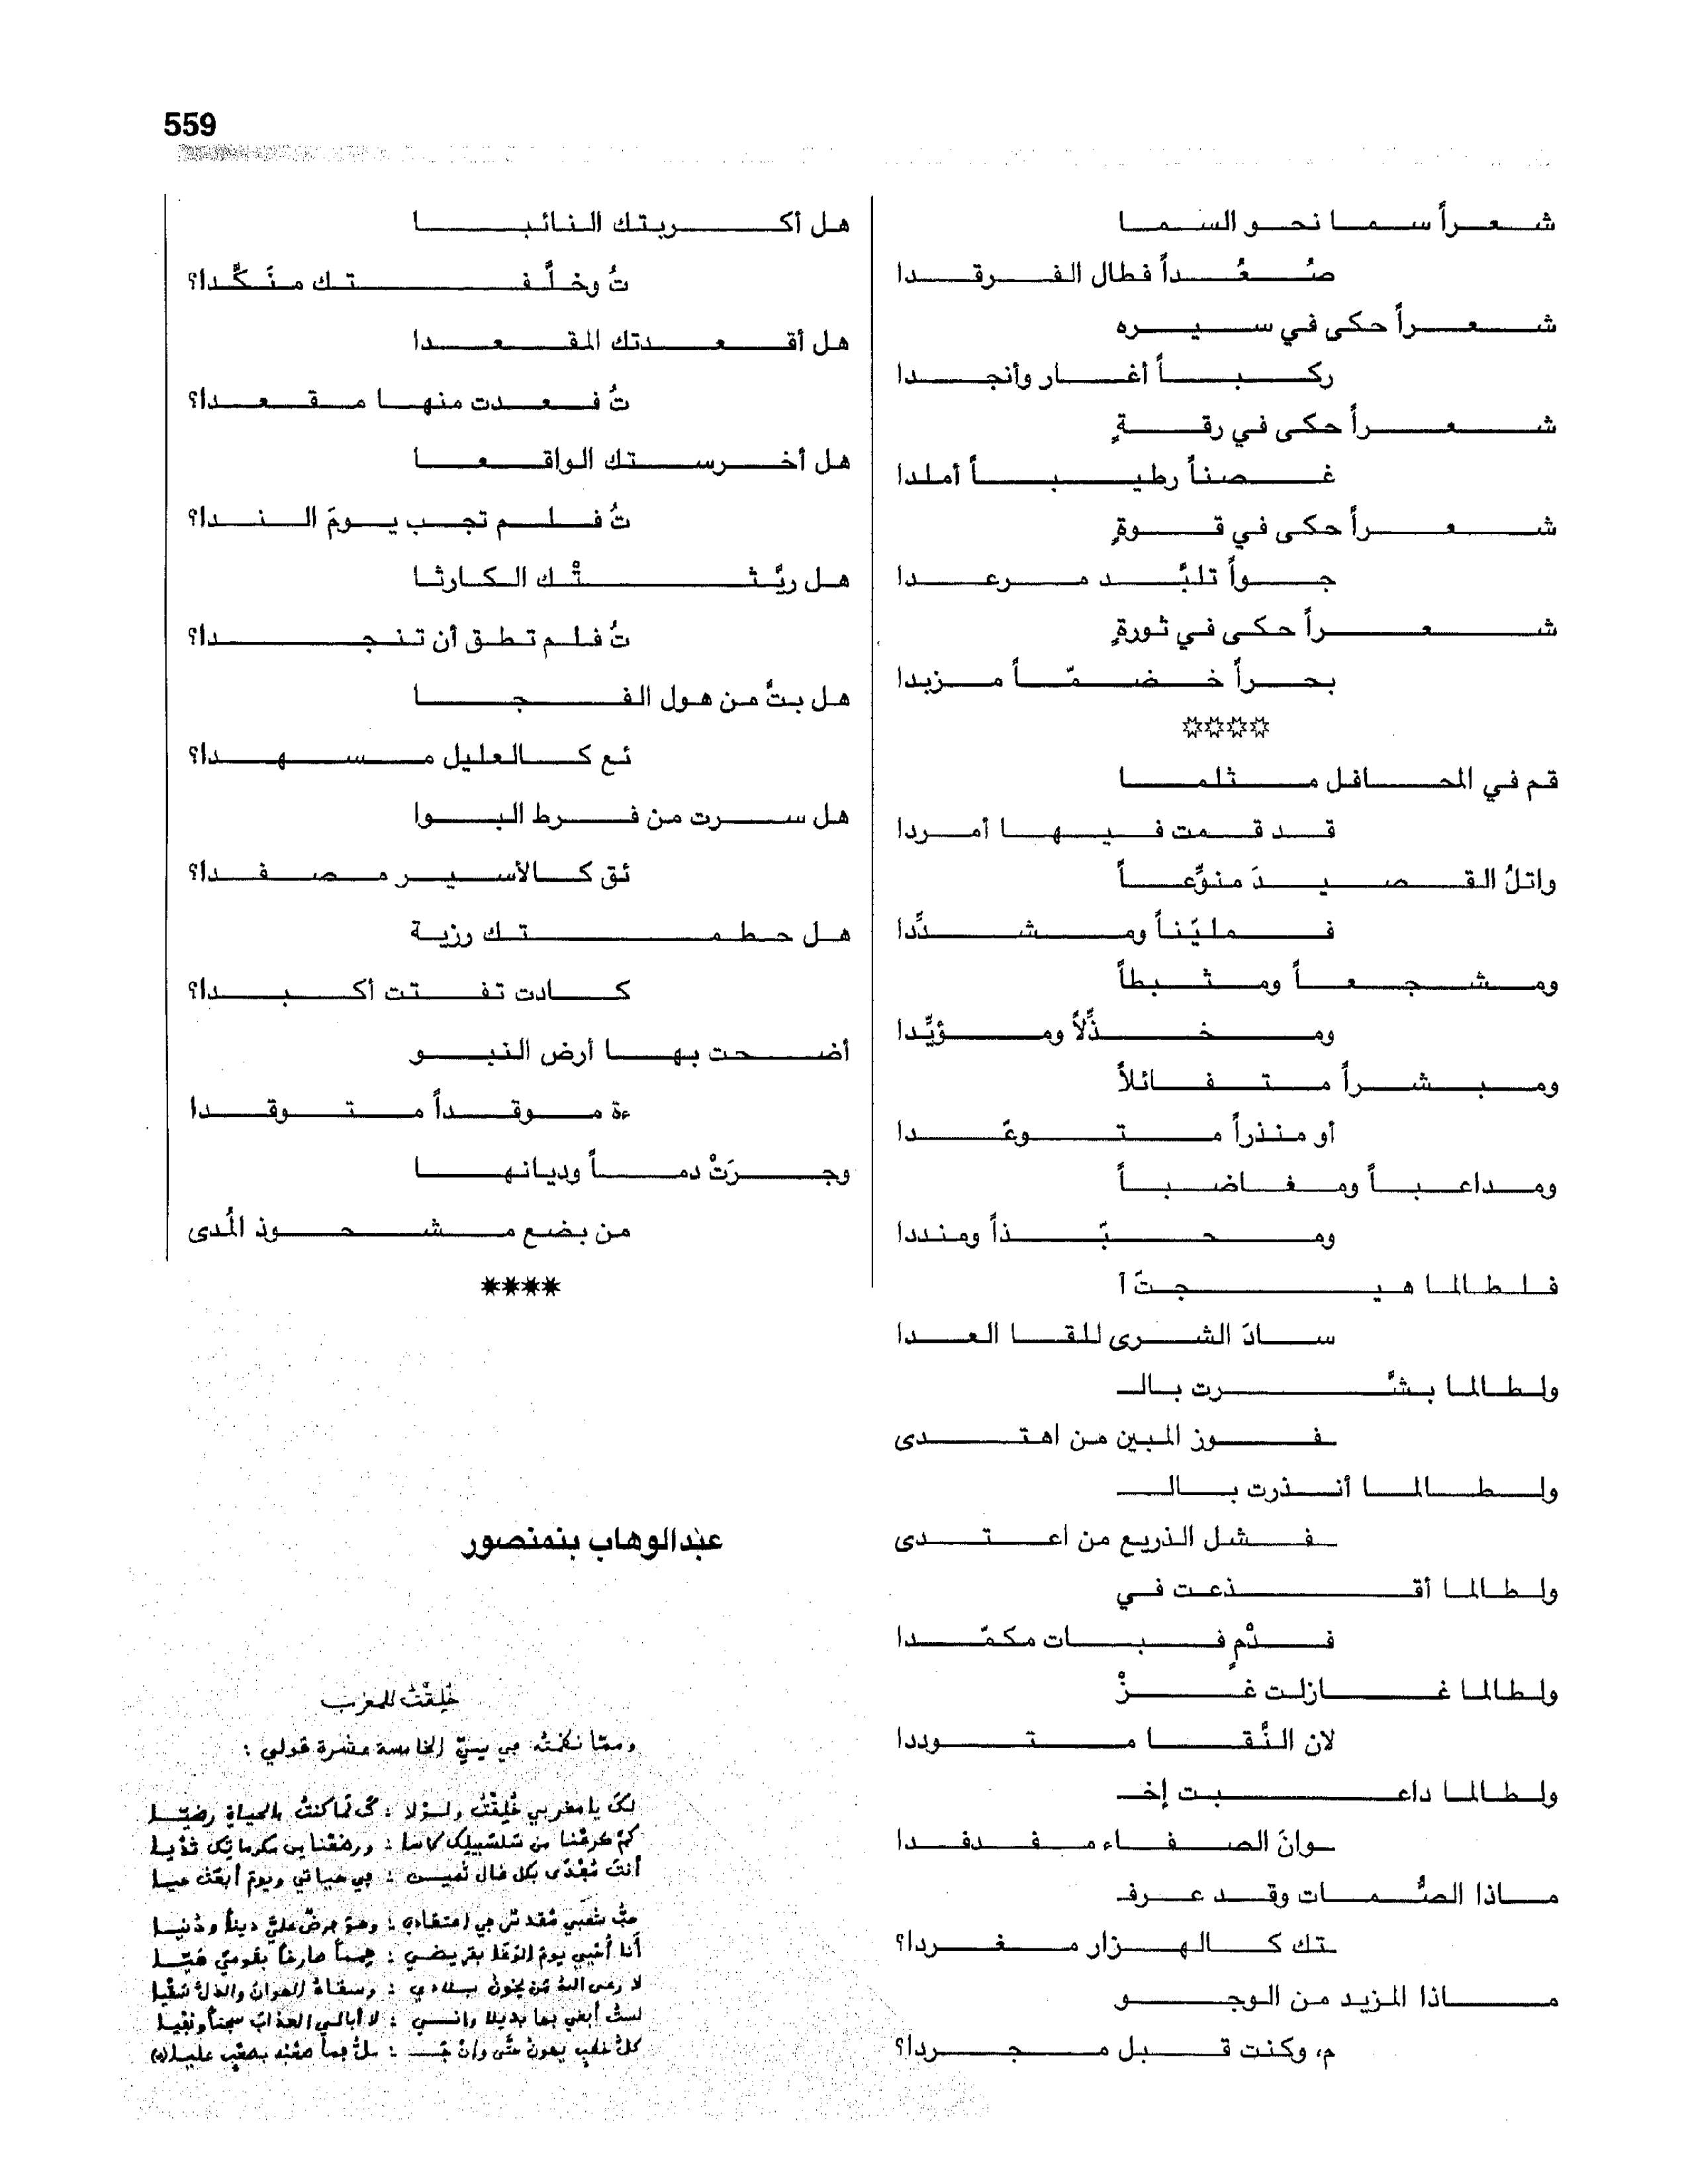 559
شعراً سما نحو السما
صُعُداً فطال الفرقدا
شعراً حكى في سيره
ركباً أغار وأنجدا
شعراً حكى في رقةٍ
غصناً رطيباً أملدا
شعراً حكى في قوةٍ
جواً تلبَّد مرعدا
شعراً حكى في ثورةٍ
بحراً خضمّاً مزبدا
****
قم في المحافل مثلما
قد قمت فيها أمردا
واتلُ القصيدَ منوِّعاً
فمليّناً ومشدِّدا
ومشجعاً ومثبطاً
ومخذِّلاً ومؤيِّدا
ومبشراً متفائلاً
أو منذراً متوعّدا
ومداعباً ومغاضباً
ومحبّذاً ومنددا
فلطالما هيجتَ آ
سادَ الشرى للقا العدا
ولطالما بشَّرت بالـ
ـفوز المبين من اهتدى
ولطالما أنذرت بالـ
ـفشل الذريع من اعتدى
ولطالما أقذعت في
فدْمٍ فبات مكمّدا
ولطالما غازلت غزْ
لان النَّقا متوددا
ولطالما داعبت إخـ
ـوانَ الصفاء مفدفدا
ماذا الصُّمات وقد عرفـ
ـتك كالهزار مغردا؟
ماذا المزيد من الوجو
م، وكنت قبل مجردا؟
هل أكربتك النائبا
تُ وخلَّفتك منَكَّدا؟
هل أقعدتك المقعدا
تُ فعدت منها مقعدا؟
هل أخرستك الواقعا
تُ فلم تجب يومَ الندا؟
هل ريَّثتْك الكارثا
تُ فلم تطق أن تنجدا؟
هل بتُّ من هول الفجا
ئع كالعليل مسهدا؟
هل سرت من فرط البوا
ئق كالأسير مصفدا؟
هل حطمتك رزية
كادت تفتت أكبدا؟
أضحت بها أرض النبو
ءة موقداً متوقدا
وجرَتْ دماً وديانها
من بضع مشحوذ المُدى
****
عبدالوهاب بنمنصور
خُلِقْتُ للمغرب
وممّا نظمته في سنّ الخامسة عشرة قولي :
لكَ يا مغربي خُلِقْتُ ولولا : كَ لَمَا كنتُ بالحياةِ رضيّا
كمْ كرعْنا من سَلسَبيلِك كاسا : ورضعْنا من مكرماتِك ثدْيا
أنتَ تُفْدَى بكل غال ثميـن : في حياتي ويومَ أبعَثُ حيا
حبُّ شعْبي مُقدسٌ في اعتقادي : وهوَ فرضٌ عليّ ديناً ودُنيا
أنا أُحْيي يومَ الوَغَا بقريضي : هِمماً صارخاً بقوميَ هَيّا
لا رعى اللهُ مَن يخونُ بِلادي : وسقاهُ الهوانَ والذلَّ سَقْيا
لستُ أبغي بها بديلا وإنـي : لا أبالي العذابَ سجناً ونفْيا
كلُّ خطبٍ يهونُ حتَّى وإنْ جَـ : ـلَّ فما صعْبه بصعْبٍ عليا